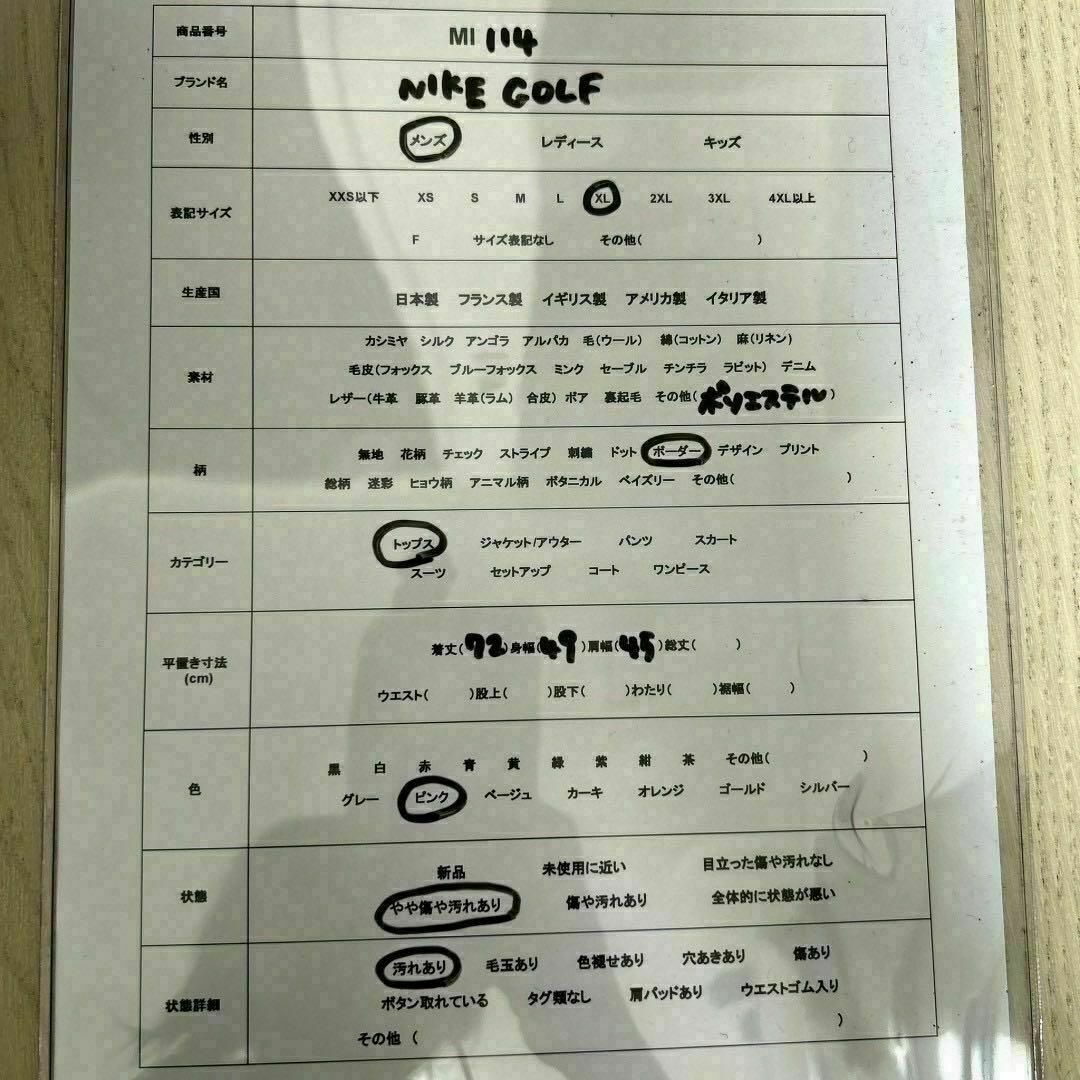 商品番号 MI 114
ブランド名 NIKE GOLF
性別 メンズ レディース キッズ
表記サイズ XXS以下 XS S M L XL 2XL 3XL 4XL以上
F サイズ表記なし その他( )
生産国 日本製 フランス製 イギリス製 アメリカ製 イタリア製
素材 カシミヤ シルク アンゴラ アルパカ 毛(ウール) 綿(コットン) 麻(リネン)
毛皮(フォックス ブルーフォックス ミンク セーブル チンチラ ラビット) デニム
レザー(牛革 豚革 羊革(ラム) 合皮) ボア 裏起毛 その他(ポリエステル)
柄 無地 花柄 チェック ストライプ 刺繍 ドット ボーダー デザイン プリント
総柄 迷彩 ヒョウ柄 アニマル柄 ボタニカル ペイズリー その他( )
カテゴリー トップス ジャケット/アウター パンツ スカート
スーツ セットアップ コート ワンピース
平置き寸法 (cm) 着丈(72)身幅(49)肩幅(45)総丈( )
ウエスト( )股上( )股下( )わたり( )裾幅( )
色 黒 白 赤 青 黄 緑 紫 紺 茶 その他( )
グレー ピンク ベージュ カーキ オレンジ ゴールド シルバー
状態 新品 未使用に近い 目立った傷や汚れなし
やや傷や汚れあり 傷や汚れあり 全体的に状態が悪い
状態詳細 汚れあり 毛玉あり 色褪せあり 穴あきあり 傷あり
ボタン取れている タグ類なし 肩パッドあり ウエストゴム入り
その他 ( )